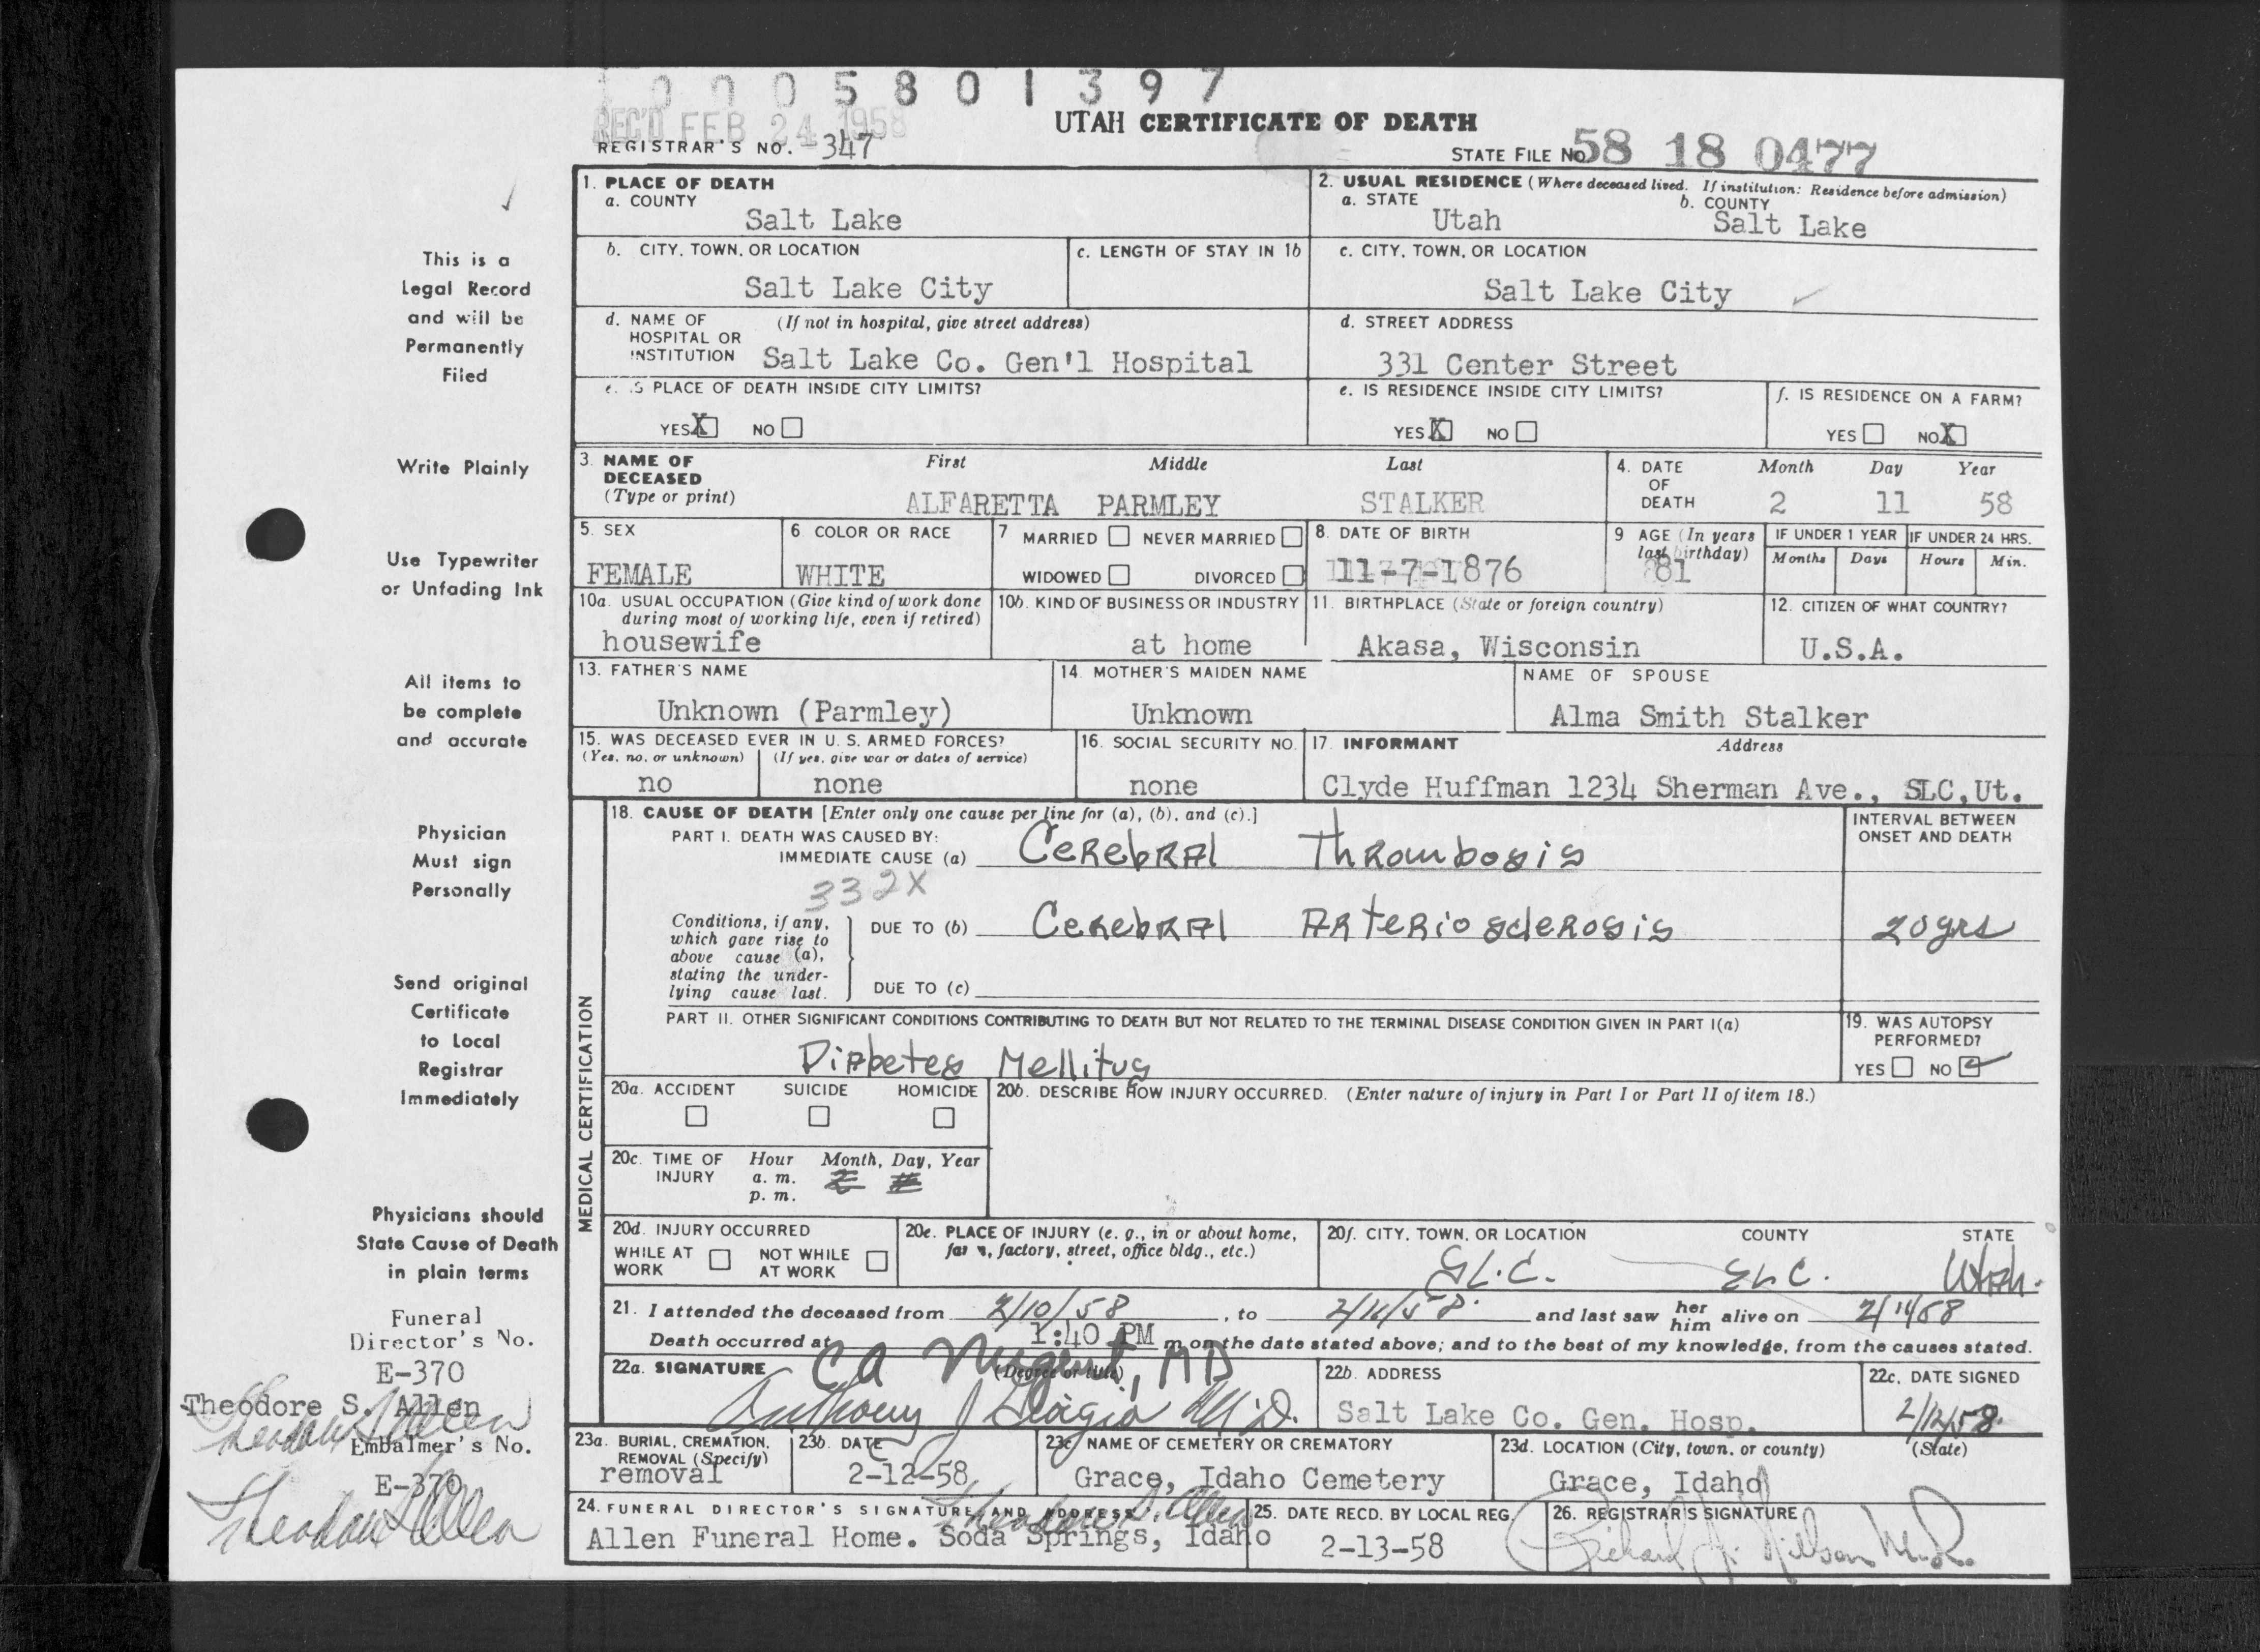 0005801397
REC'D FEB 24 1958
UTAH CERTIFICATE OF DEATH
REGISTRAR'S NO. 347
STATE FILE No 58 18 0477
This is a
Legal Record
and will be
Permanently
Filed
Write Plainly
Use Typewriter
or Unfading Ink
All items to
be complete
and accurate
Physician
Must sign
Personally
Send original
Certificate
to Local
Registrar
Immediately
Physicians should
State Cause of Death
in plain terms
Funeral
Director's No.
E-370
Theodore S. Allen
Theodore S Allen
Embalmer's No.
E-370
Theodore S Allen
1. PLACE OF DEATH
a. COUNTY
Salt Lake
2. USUAL RESIDENCE (Where deceased lived. If institution: Residence before admission)
a. STATE b. COUNTY
Utah Salt Lake
b. CITY, TOWN, OR LOCATION
Salt Lake City
c. LENGTH OF STAY IN 1b
c. CITY, TOWN, OR LOCATION
Salt Lake City
d. NAME OF (If not in hospital, give street address)
HOSPITAL OR
INSTITUTION Salt Lake Co. Gen'l Hospital
d. STREET ADDRESS
331 Center Street
e. IS PLACE OF DEATH INSIDE CITY LIMITS?
YES X NO
e. IS RESIDENCE INSIDE CITY LIMITS?
YES X NO
f. IS RESIDENCE ON A FARM?
YES NO X
3. NAME OF DECEASED (Type or print)
First Middle Last
ALFARETTA PARMLEY STALKER
4. DATE OF DEATH
Month Day Year
2 11 58
5. SEX
FEMALE
6 COLOR OR RACE
WHITE
7 MARRIED NEVER MARRIED
WIDOWED DIVORCED
8. DATE OF BIRTH
11-7-1876
9 AGE (In years last birthday)
81
IF UNDER 1 YEAR IF UNDER 24 HRS.
Months Days Hours Min.
10a. USUAL OCCUPATION (Give kind of work done
during most of working life, even if retired)
housewife
10b. KIND OF BUSINESS OR INDUSTRY
at home
11. BIRTHPLACE (State or foreign country)
Akasa, Wisconsin
12. CITIZEN OF WHAT COUNTRY?
U.S.A.
13. FATHER'S NAME
Unknown (Parmley)
14. MOTHER'S MAIDEN NAME
Unknown
NAME OF SPOUSE
Alma Smith Stalker
15. WAS DECEASED EVER IN U. S. ARMED FORCES?
(Yes, no, or unknown) (If yes, give war or dates of service)
no none
16. SOCIAL SECURITY NO.
none
17. INFORMANT Address
Clyde Huffman 1234 Sherman Ave., SLC, Ut.
MEDICAL CERTIFICATION
18. CAUSE OF DEATH [Enter only one cause per line for (a), (b), and (c).]
INTERVAL BETWEEN
ONSET AND DEATH
PART I. DEATH WAS CAUSED BY:
IMMEDIATE CAUSE (a) Cerebral Thrombosis
332X
Conditions, if any,
which gave rise to
above cause (a),
stating the under-
lying cause last.
DUE TO (b) Cerebral Arteriosclerosis 20 yrs
DUE TO (c)
PART II. OTHER SIGNIFICANT CONDITIONS CONTRIBUTING TO DEATH BUT NOT RELATED TO THE TERMINAL DISEASE CONDITION GIVEN IN PART I(a)
Diabetes Mellitus
19. WAS AUTOPSY
PERFORMED?
YES NO
20a. ACCIDENT SUICIDE HOMICIDE
20b. DESCRIBE HOW INJURY OCCURRED. (Enter nature of injury in Part I or Part II of item 18.)
20c. TIME OF Hour Month, Day, Year
INJURY a. m.
p. m.
20d. INJURY OCCURRED
WHILE AT WORK NOT WHILE AT WORK
20e. PLACE OF INJURY (e. g., in or about home,
farm, factory, street, office bldg., etc.)
20f. CITY, TOWN, OR LOCATION COUNTY STATE
S.L.C. SLC. Utah.
21. I attended the deceased from 2/10/58, to 2/11/58 and last saw her him alive on 2/11/58
Death occurred at 1:40 PM m on the date stated above; and to the best of my knowledge, from the causes stated.
22a. SIGNATURE (Degree or title)
CA Nugent, MD
Anthony J M.D.
22b. ADDRESS
Salt Lake Co. Gen. Hosp.
22c. DATE SIGNED
2/12/58
23a. BURIAL, CREMATION,
REMOVAL (Specify)
removal
23b. DATE
2-12-58
23c NAME OF CEMETERY OR CREMATORY
Grace, Idaho Cemetery
23d. LOCATION (City, town, or county) (State)
Grace, Idaho
24. FUNERAL DIRECTOR'S SIGNATURE AND ADDRESS
Theodore S. Allen
Allen Funeral Home. Soda Springs, Idaho
25. DATE RECD. BY LOCAL REG.
2-13-58
26. REGISTRAR'S SIGNATURE
Richard